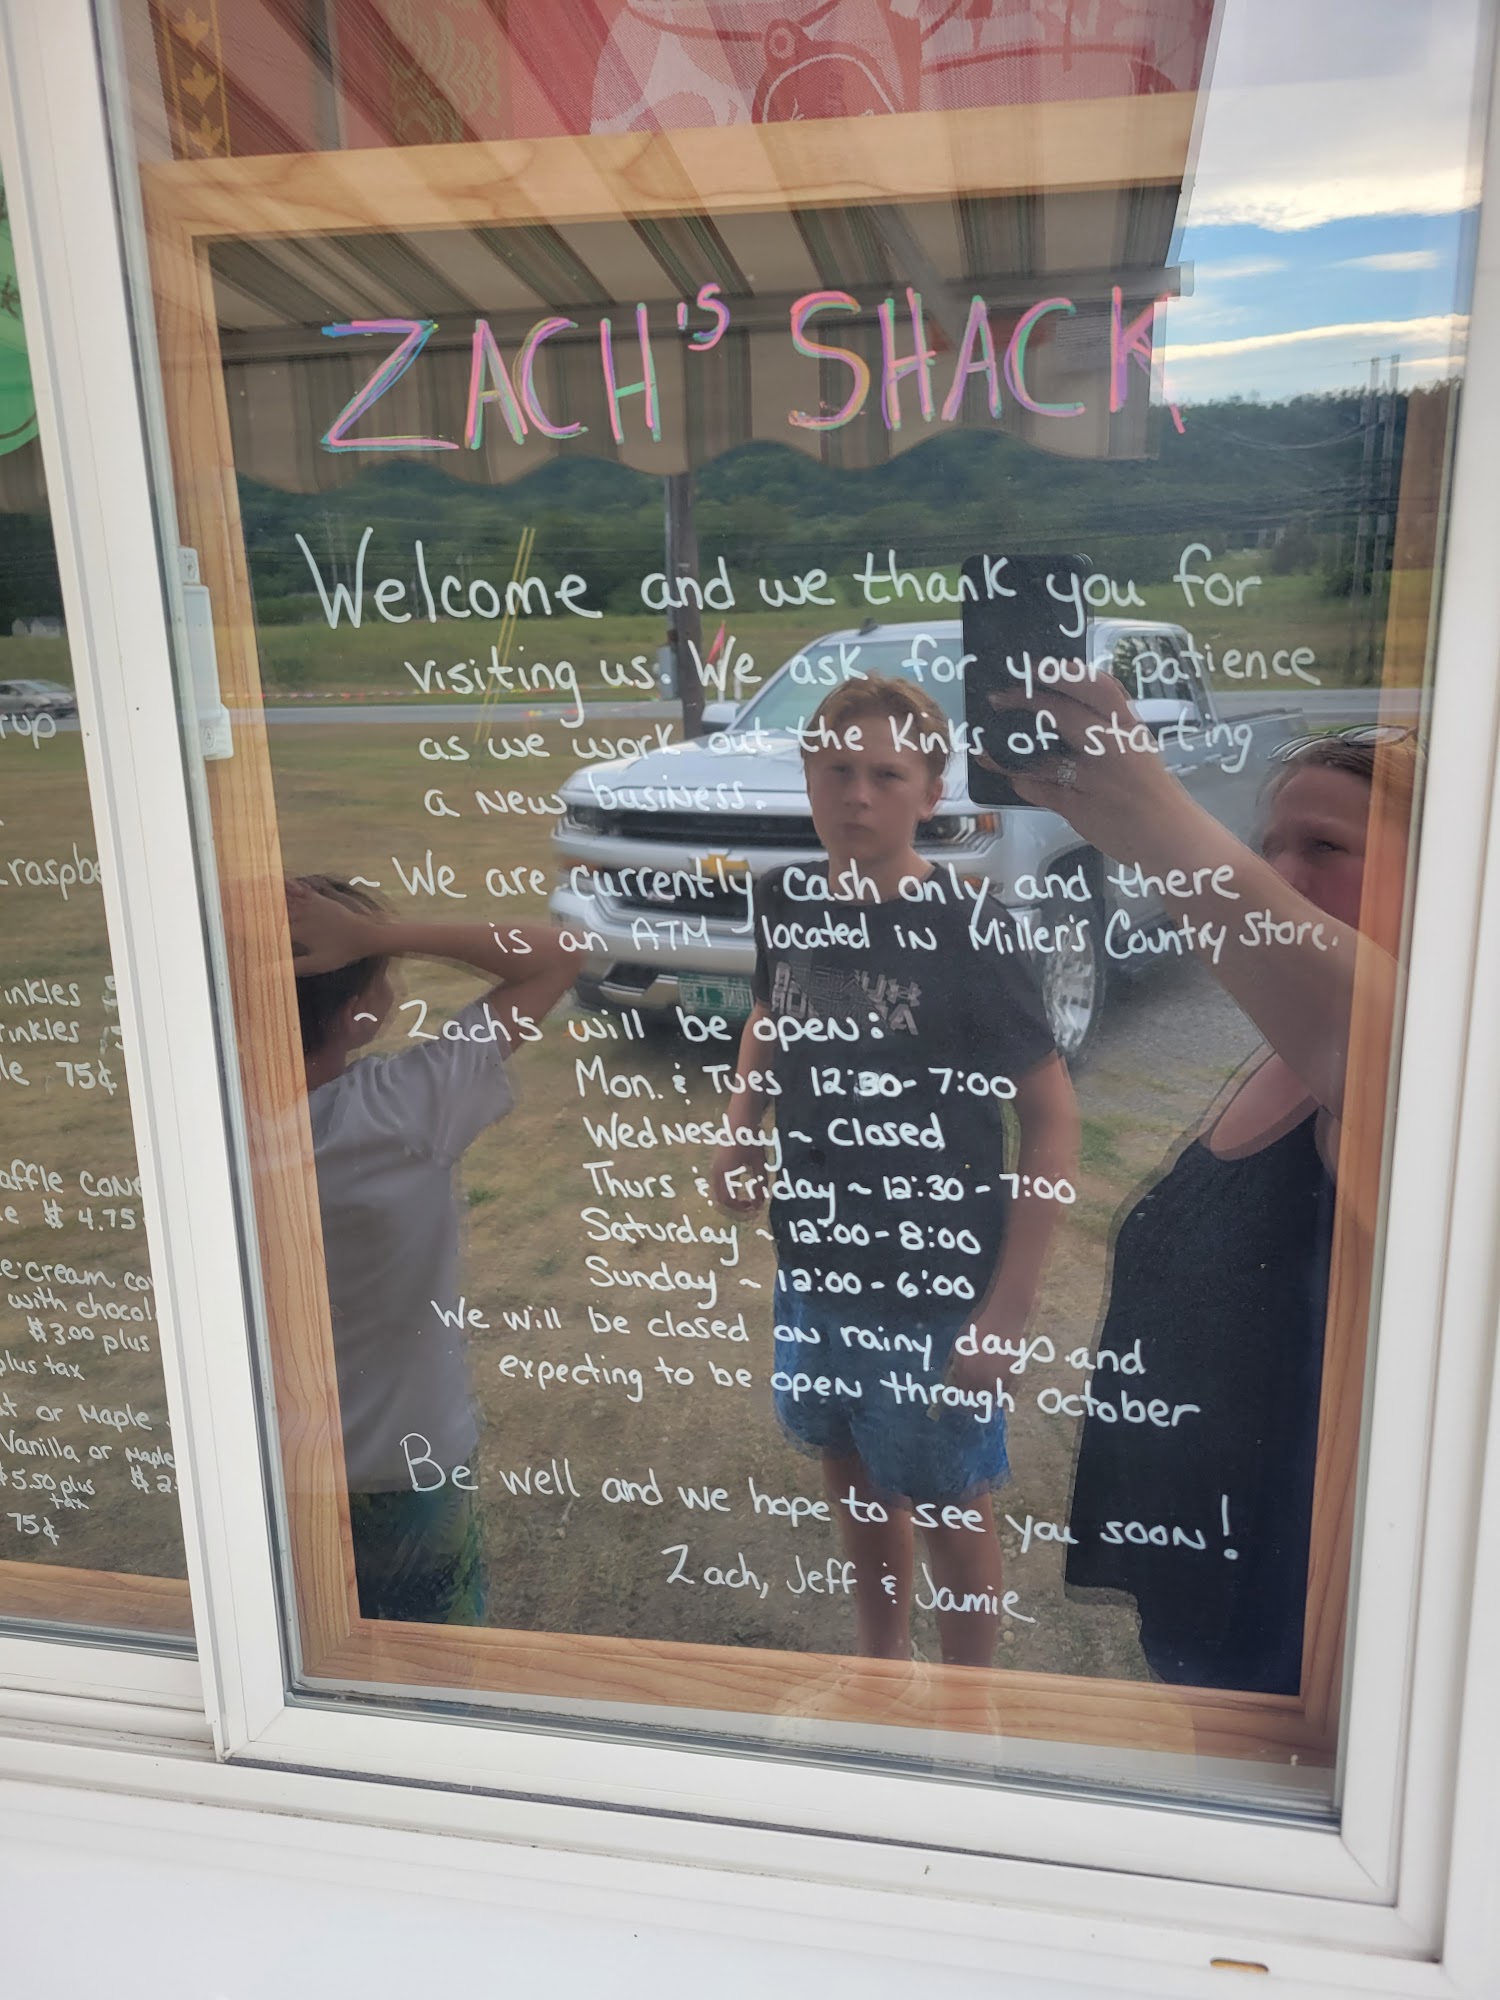 ZACH'S SHACK
Welcome and we thank you for
visiting us. We ask for your patience
as we work out the kinks of starting
a new business.
~ We are currently cash only and there
is an ATM located in Miller's Country Store.
~ Zach's will be open:
Mon. & Tues 12:30-7:00
Wednesday ~ Closed
Thurs & Friday ~ 12:30-7:00
Saturday ~ 12:00-8:00
Sunday ~ 12:00-6:00
We will be closed on rainy days and
expecting to be open through October
Be well and we hope to see you soon!
Zach, Jeff & Jamie
rup
raspbe
inkles
rinkles
le 75¢
affle cone
e $4.75
e cream, co
with chocol
$3.00 plus
plus tax
t or Maple
Vanilla or Maple
$5.50 plus $2.
tax
75¢